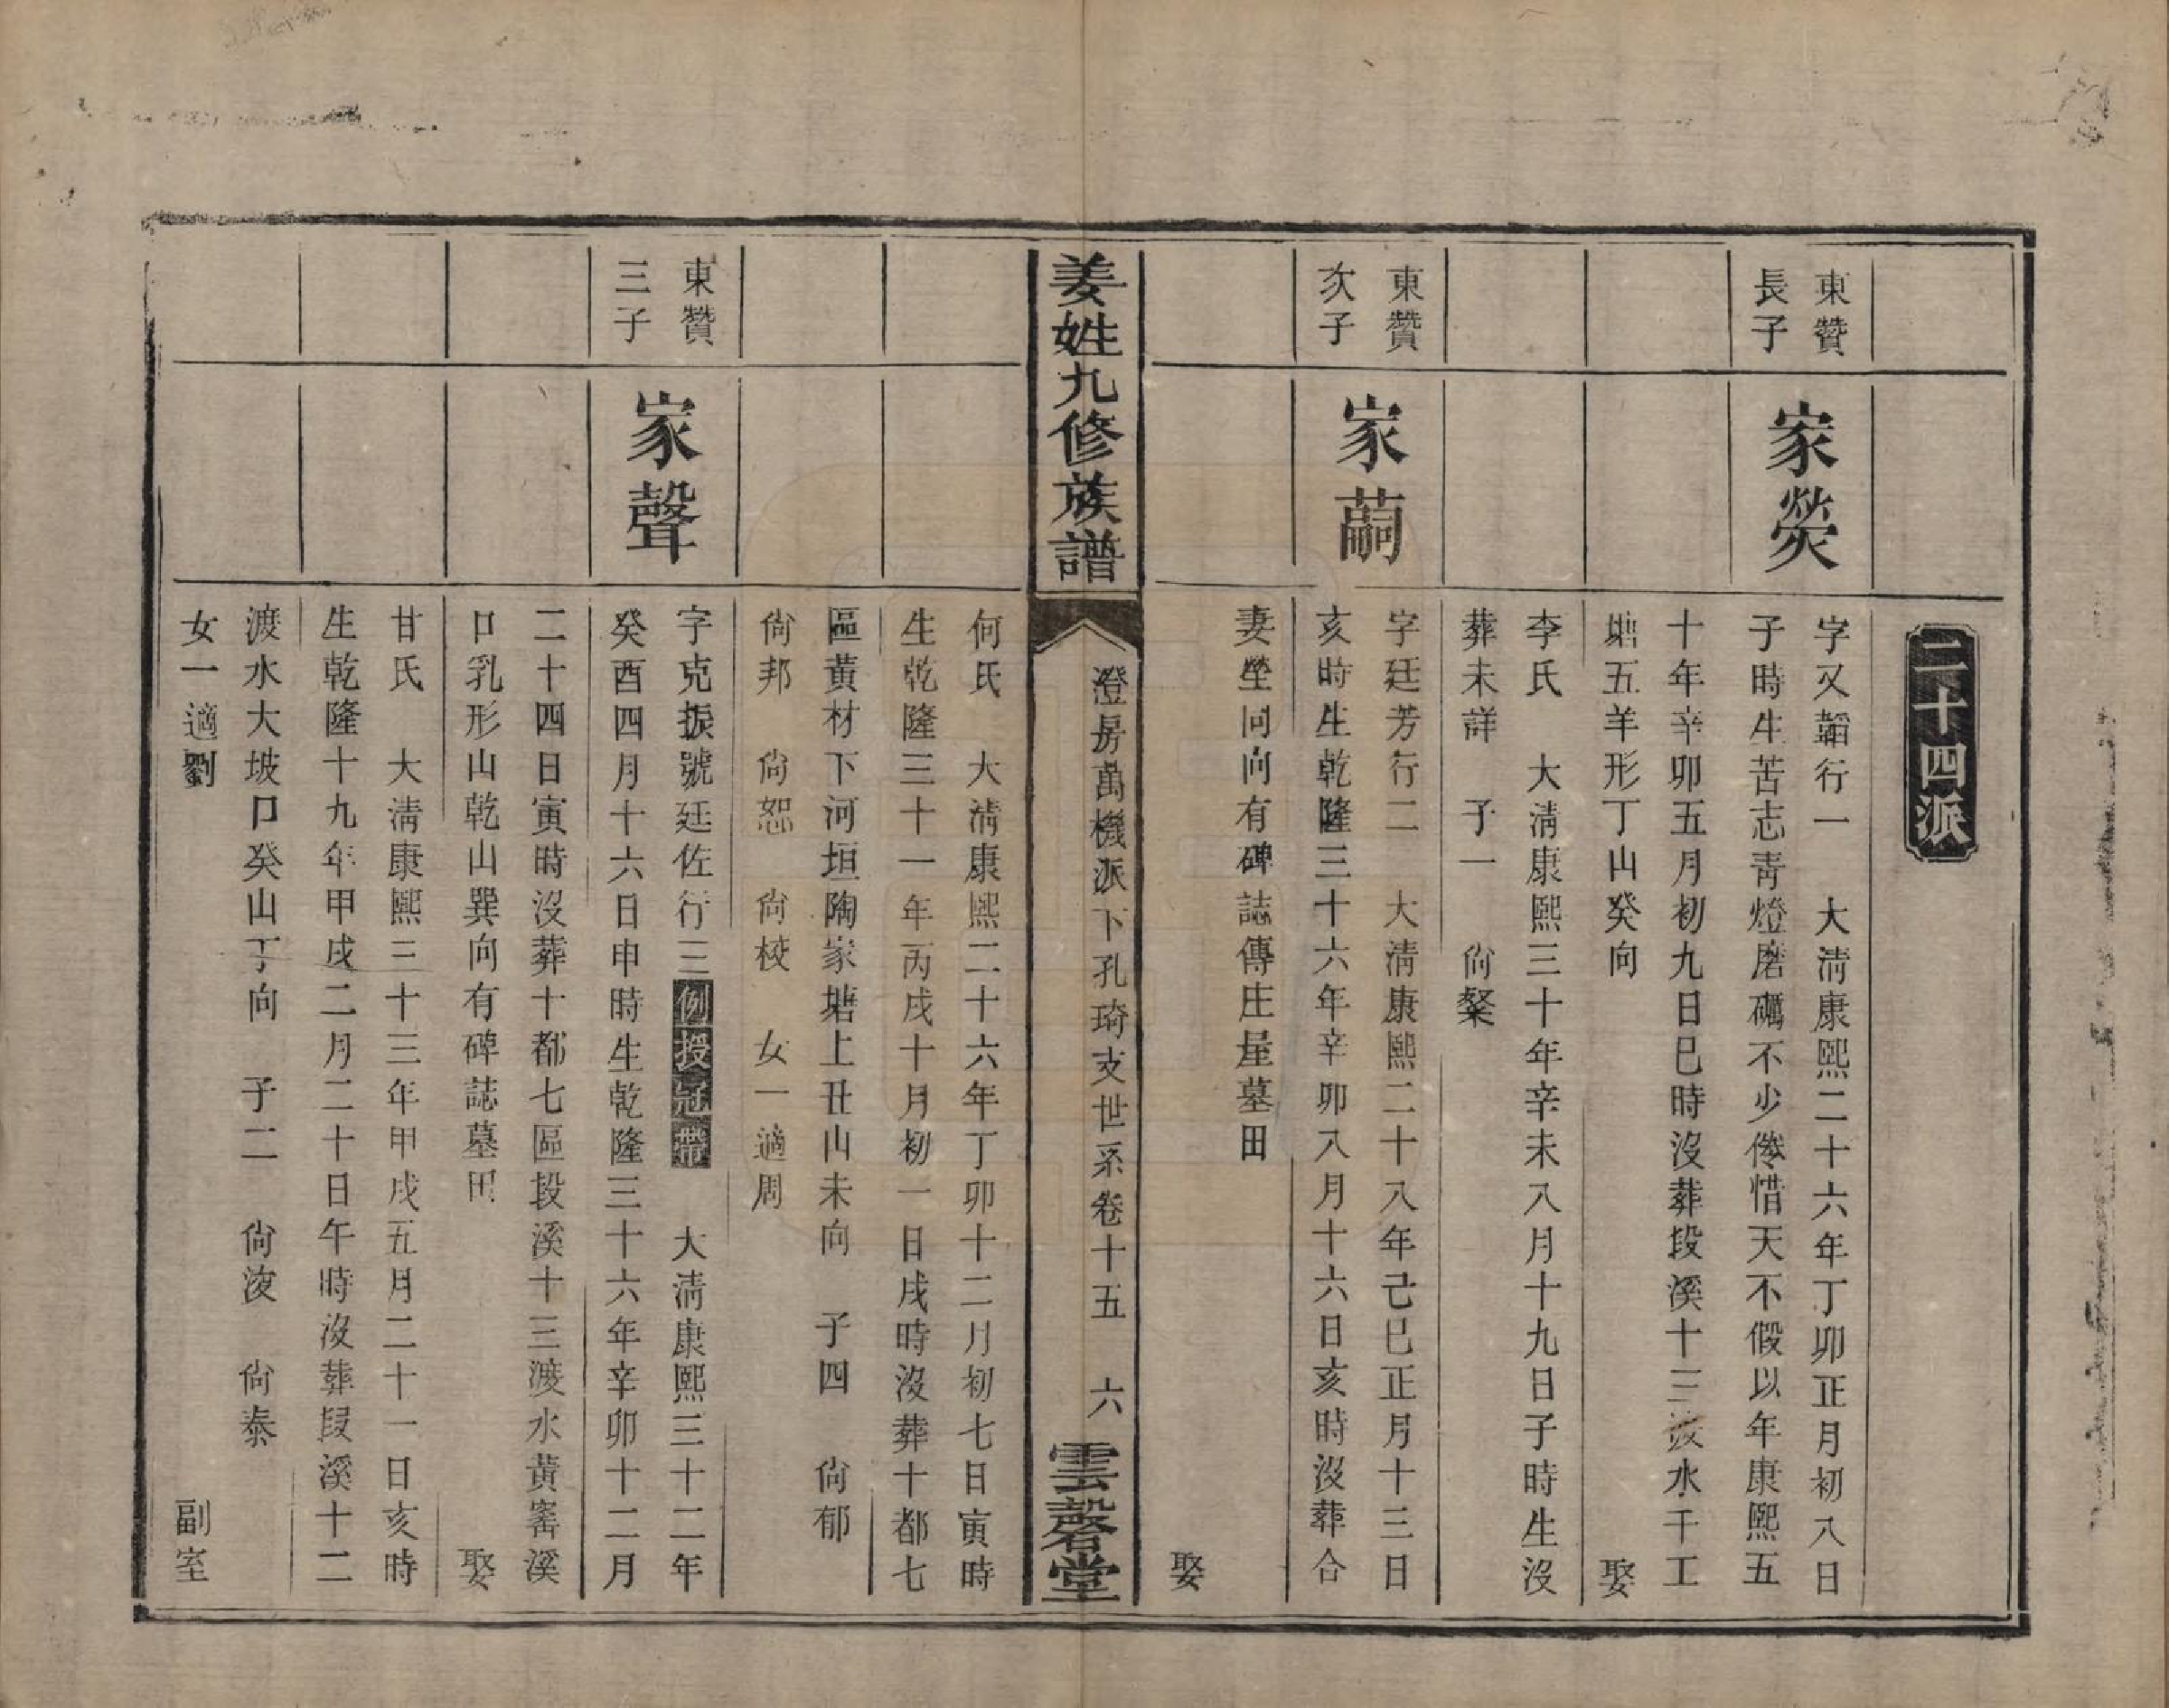 二十四派
東贊
長子
家熒
字又韜行一　大淸康熙二十六年丁卯正月初八日
子時生苦志靑燈磨礪不少倦惜天不假以年康熙五
十年辛卯五月初九日巳時沒葬段溪十三渡水干工
塘五羊形丁山癸向　娶
李氏　大淸康熙三十年辛未八月十九日子時生沒
葬未詳　子一　尙粲
東贊
次子
家蕳
字廷芳行二　大淸康熙二十八年己巳正月十三日
亥時生乾隆三十六年辛卯八月十六日亥時沒葬合
妻塋同向有碑誌傳庄屋墓田
娶
姜姓九修族譜
澄房萬機派下孔琦支世系卷十五　六
雲礊堂
何氏　大淸康熙二十六年丁卯十二月初七日寅時
生乾隆三十一年丙戌十月初一日戌時沒葬十都七
區黃材下河垣陶家塘上丑山未向　子四　尙郁
尙邦　尙恕　尙校　女一適周
東贊
三子
家聲
字克振號廷佐行三例授冠帶　大淸康熙三十二年
癸酉四月十六日申時生乾隆三十六年辛卯十二月
二十四日寅時沒葬十都七區段溪十三渡水黃窰溪
口乳形山乾山巽向有碑誌墓田　娶
甘氏　大淸康熙三十三年甲戌五月二十一日亥時
生乾隆十九年甲戌二月二十日午時沒葬段溪十二
渡水大坡口癸山丁向　子二　尙浚　尙泰
女一適劉　副室